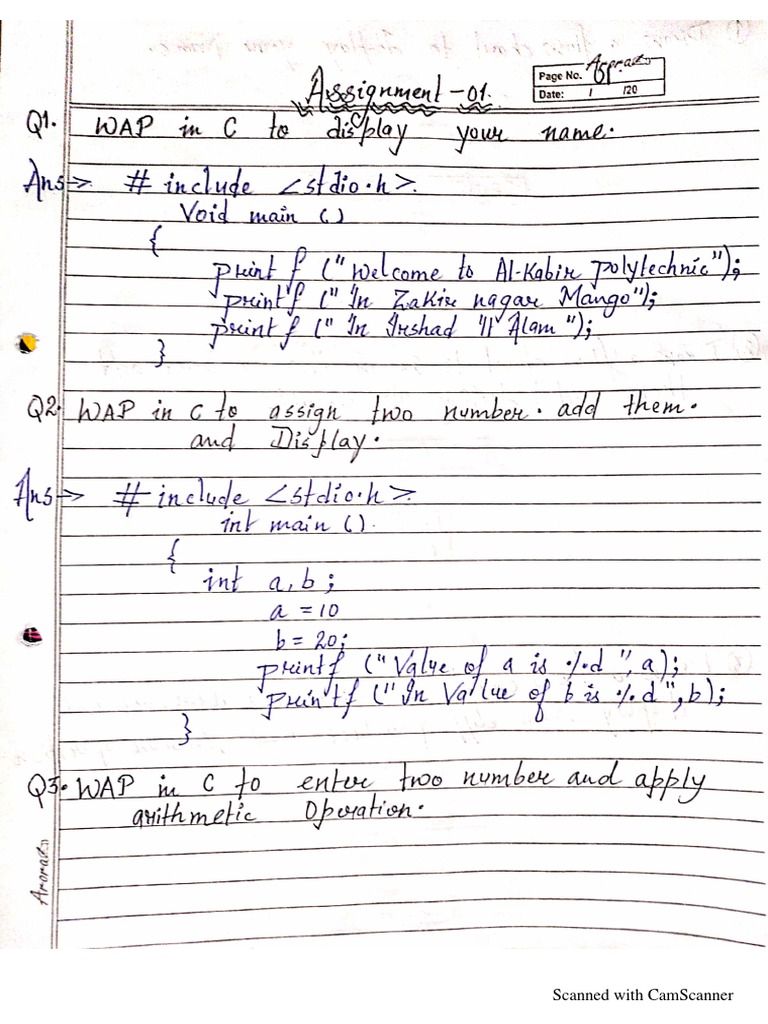 Page No.
Date: / /20
Assignment -01.
Q1. WAP in C to display your name.
Ans → # include <stdio.h>.
Void main ()
{
printf ("Welcome to Al-Kabir polytechnic");
printf ("In Zakir nagar Mango");
printf (" In Irshad "Alam");
}
Q2. WAP in C to assign two number. add them.
and Display.
Ans → # include <stdio.h>.
int main ().
{
int a, b ;
a = 10
b = 20;
printf ("Value of a is %d ", a);
printf ("In Vallue of b is %d ", b);
}
Q3. WAP in C to enter two number and apply
arithmetic Operation.
Scanned with CamScanner